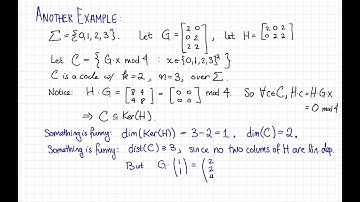 ANOTHER EXAMPLE:
Σ = {0,1,2,3}. Let G = [2 0; 0 2; 2 2], let H = [2 0 2; 0 2 2]
Let C = { G·x mod 4 : x ∈ {0,1,2,3}² }
C is a code w/ k=2, n=3, over Σ.
Notice: H·G = [8 4; 4 8] = [0 0; 0 0] mod 4. So ∀c∈C, H·c = H·G·x
= 0 mod 4
⇒ C ⊆ Ker(H).
Something is funny: dim(Ker(H)) = 3-2 = 1, dim(C) = 2.
Something is funny: dist(C) ≥ 3, since no two colums of H are lin. dep.
But G·(1; 1) = (2; 2;